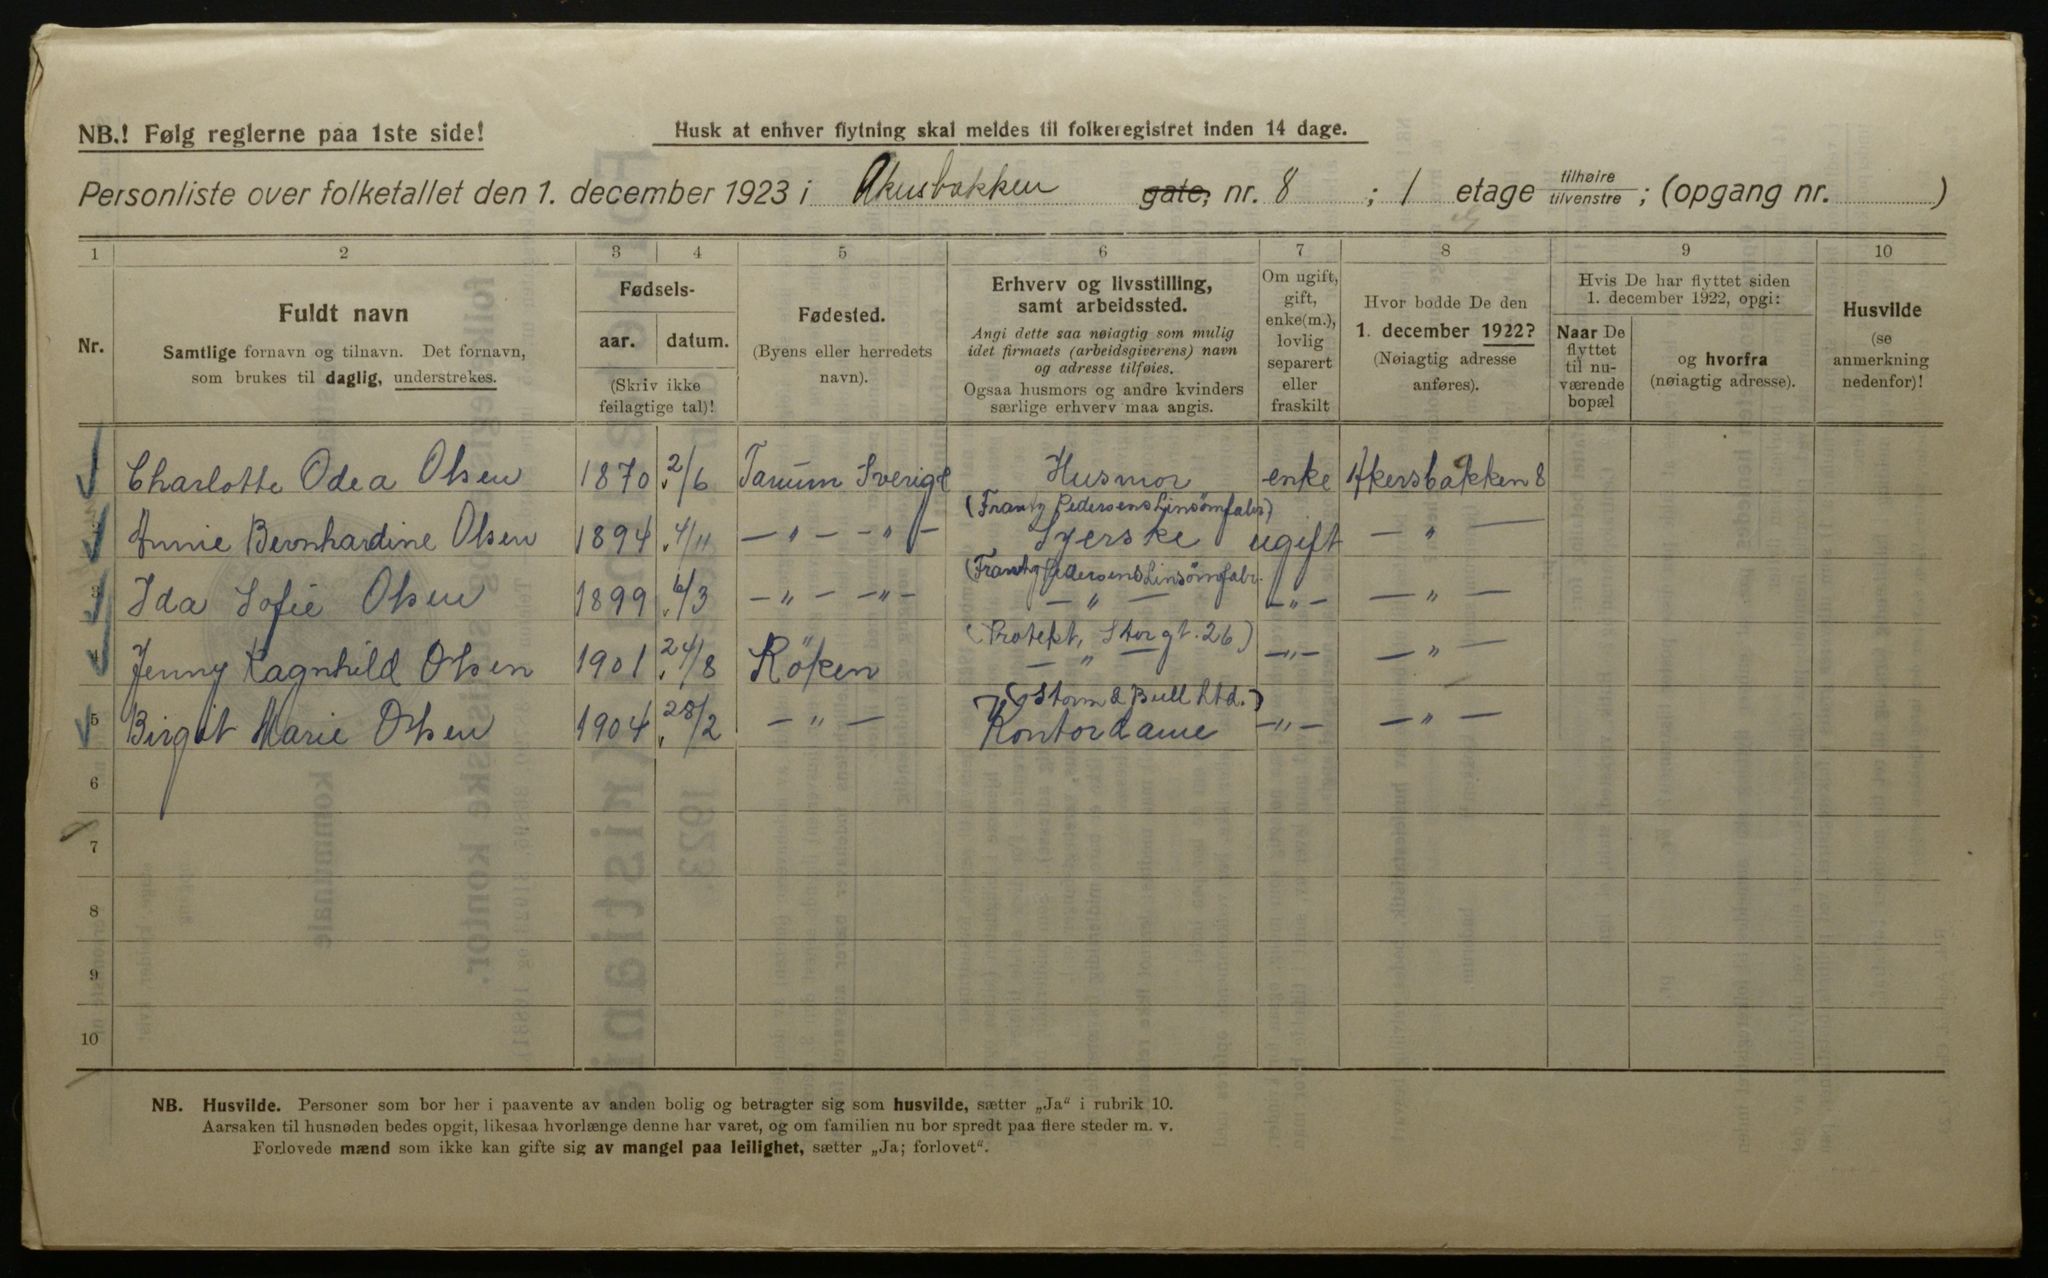 NB.! Følg reglerne paa 1ste side!
Husk at enhver flytning skal meldes til folkeregistret inden 14 dage.
Personliste over folketallet den 1. december 1923 i Akersbakken gate, nr. 8 ; 1 etage tilhøire tilvenstre ; (opgang nr. )
1 2 3 4 5 6 7 8 9 10
Nr.
Fuldt navn
Samtlige fornavn og tilnavn. Det fornavn,
som brukes til daglig, understrekes.
Fødsels-
aar. datum.
(Skriv ikke
feilagtige tal)!
Fødested.
(Byens eller herredets
navn).
Erhverv og livsstilling,
samt arbeidssted.
Angi dette saa nøiagtig som mulig
idet firmaets (arbeidsgiverens) navn
og adresse tilføies.
Ogsaa husmors og andre kvinders
særlige erhverv maa angis.
Om ugift,
gift,
enke(m.),
lovlig
separert
eller
fraskilt
Hvor bodde De den
1. december 1922?
(Nøiagtig adresse
anføres).
Hvis De har flyttet siden
1. december 1922, opgi:
Naar De
flyttet
til nu-
værende
bopæl
og hvorfra
(nøiagtig adresse).
Husvilde
(se
anmerkning
nedenfor)!
Charlotte Odea Olsen 1870 2/6 Tanum Sverige Husmor enke Akersbakken 8
(Frantz Pedersens Linsömfabr)
Annie Bernhardine Olsen 1894 4/11 — „ — — „ — Syerske ugift — „ —
(Frantz Pedersens Linsömfabr.
3 Ida Sofie Olsen 1899 6/3 — „ — — „ — — „ — — „ — — „ —
(Protekt, Storgt. 26)
4 Jenny Ragnhild Olsen 1901 24/8 Röken — „ — — „ — — „ —
(Storm & Bull Ltd.)
5 Birgit Marie Olsen 1904 28/2 — „ — Kontordame — „ — — „ —
6
7
8
9
10
NB. Husvilde. Personer som bor her i paavente av anden bolig og betragter sig som husvilde, sætter „Ja“ i rubrik 10.
Aarsaken til husnøden bedes opgit, likesaa hvorlænge denne har varet, og om familien nu bor spredt paa flere steder m. v.
Forlovede mænd som ikke kan gifte sig av mangel paa leilighet, sætter „Ja; forlovet“.